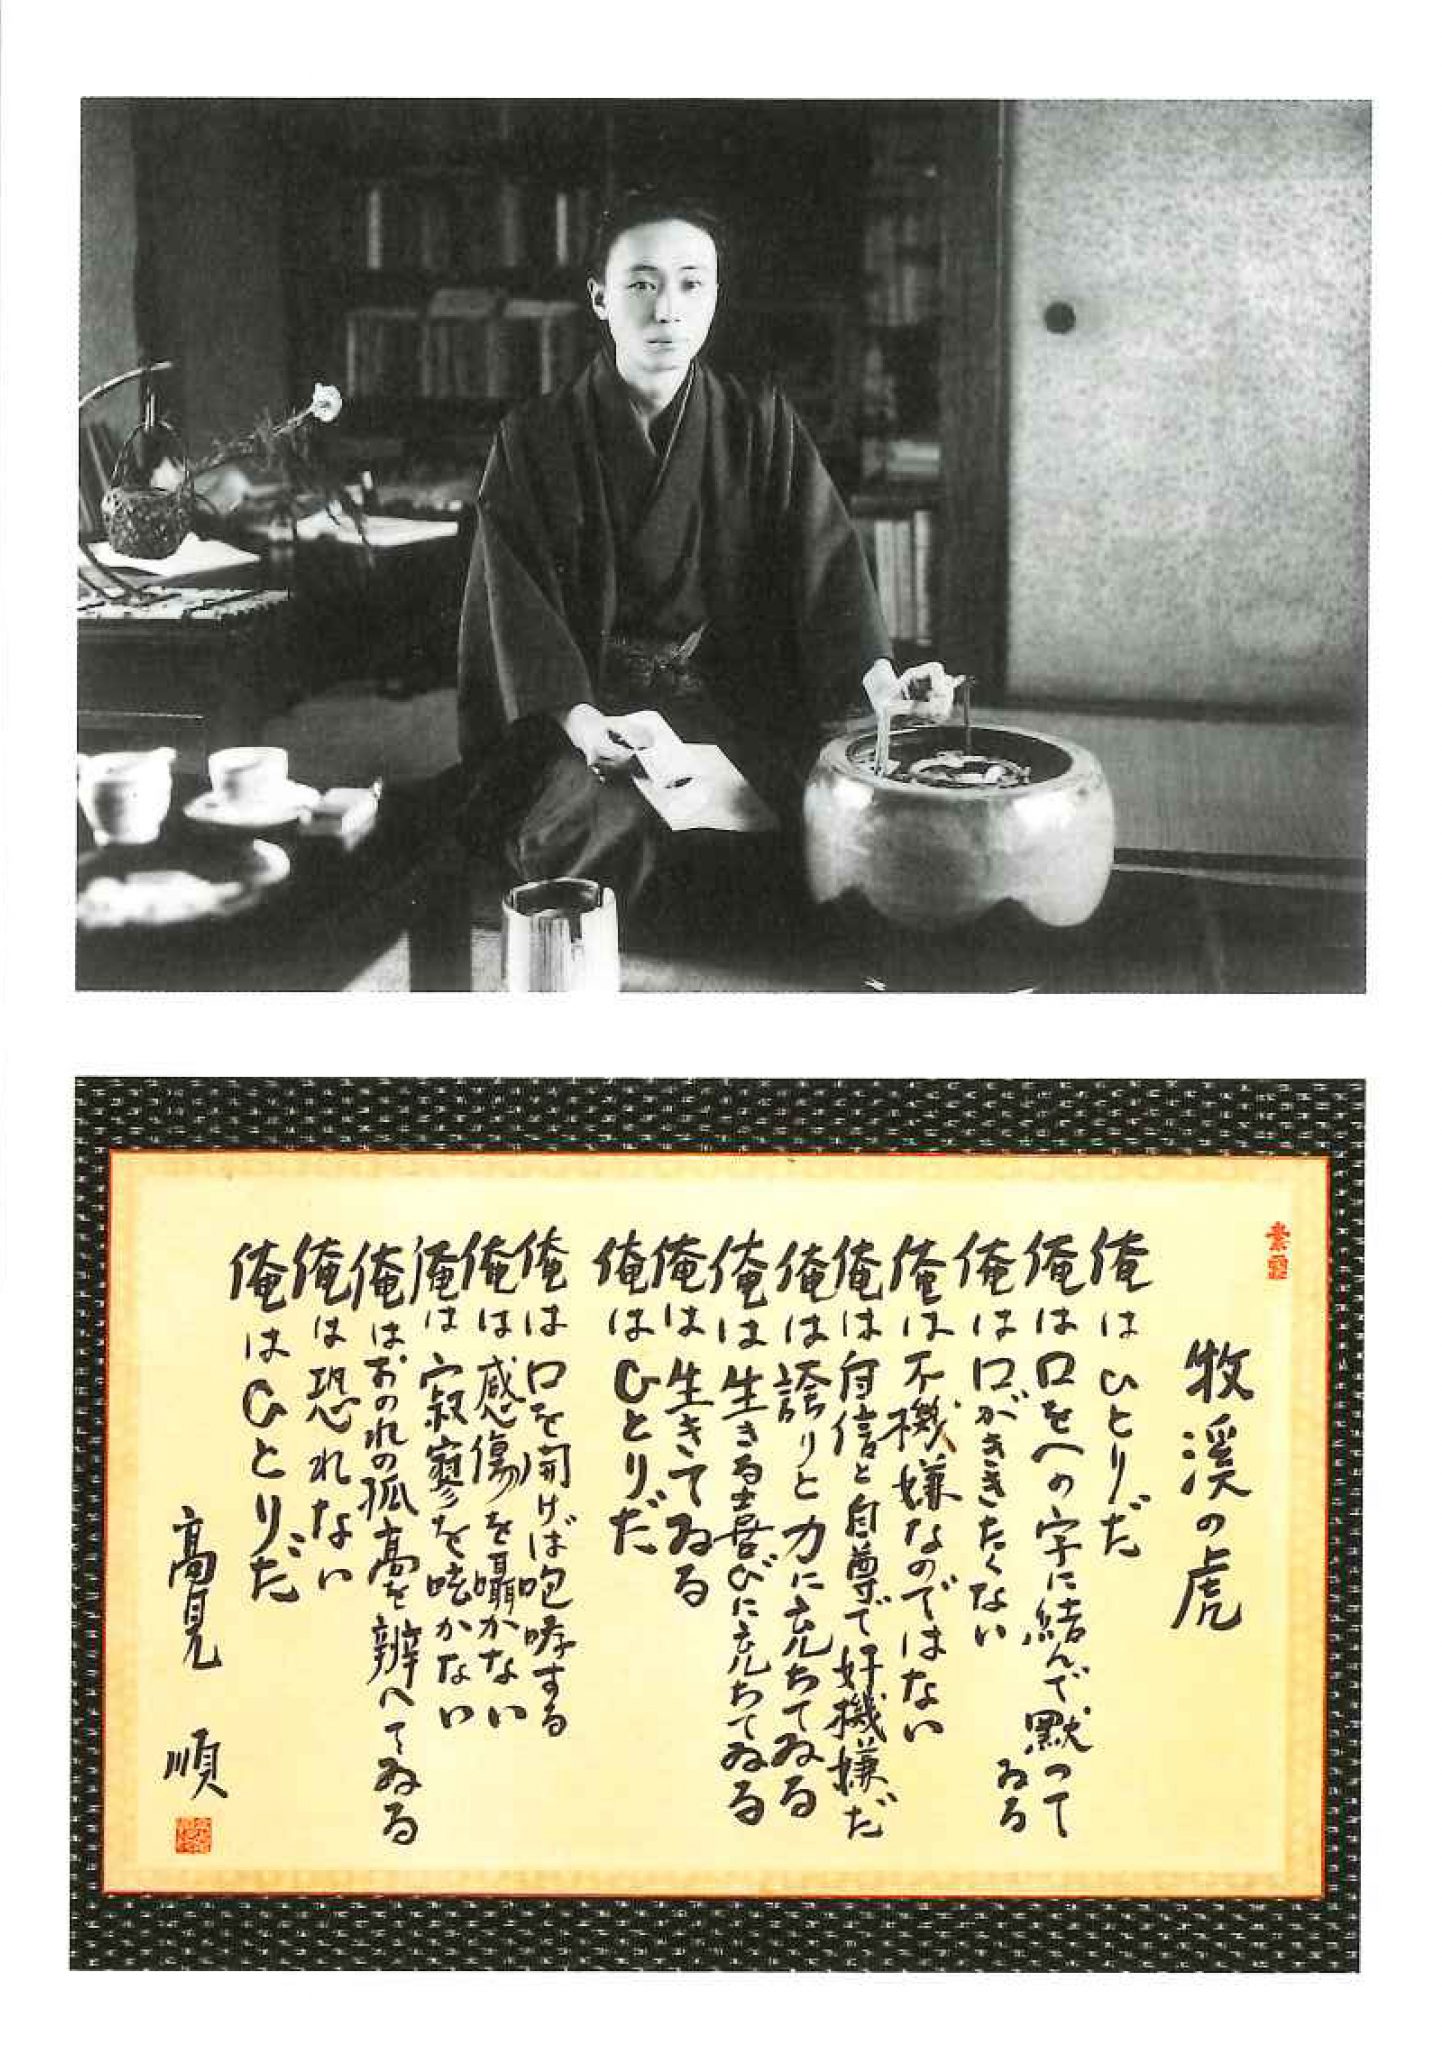 牧溪の虎
俺はひとりだ
俺は口をへの字に結んで黙つて
ゐる
俺は口がききたくない
俺は不機嫌なのではない
俺は自信と自尊で好機嫌だ
俺は誇りと力に充ちてゐる
俺は生きる喜びに充ちてゐる
俺は生きてゐる
俺はひとりだ
俺は口を開けば咆哮する
俺は感傷を囁かない
俺は寂寥を呟かない
俺はおのれの孤高を辨へてゐる
俺は恐れない
俺はひとりだ
高見 順